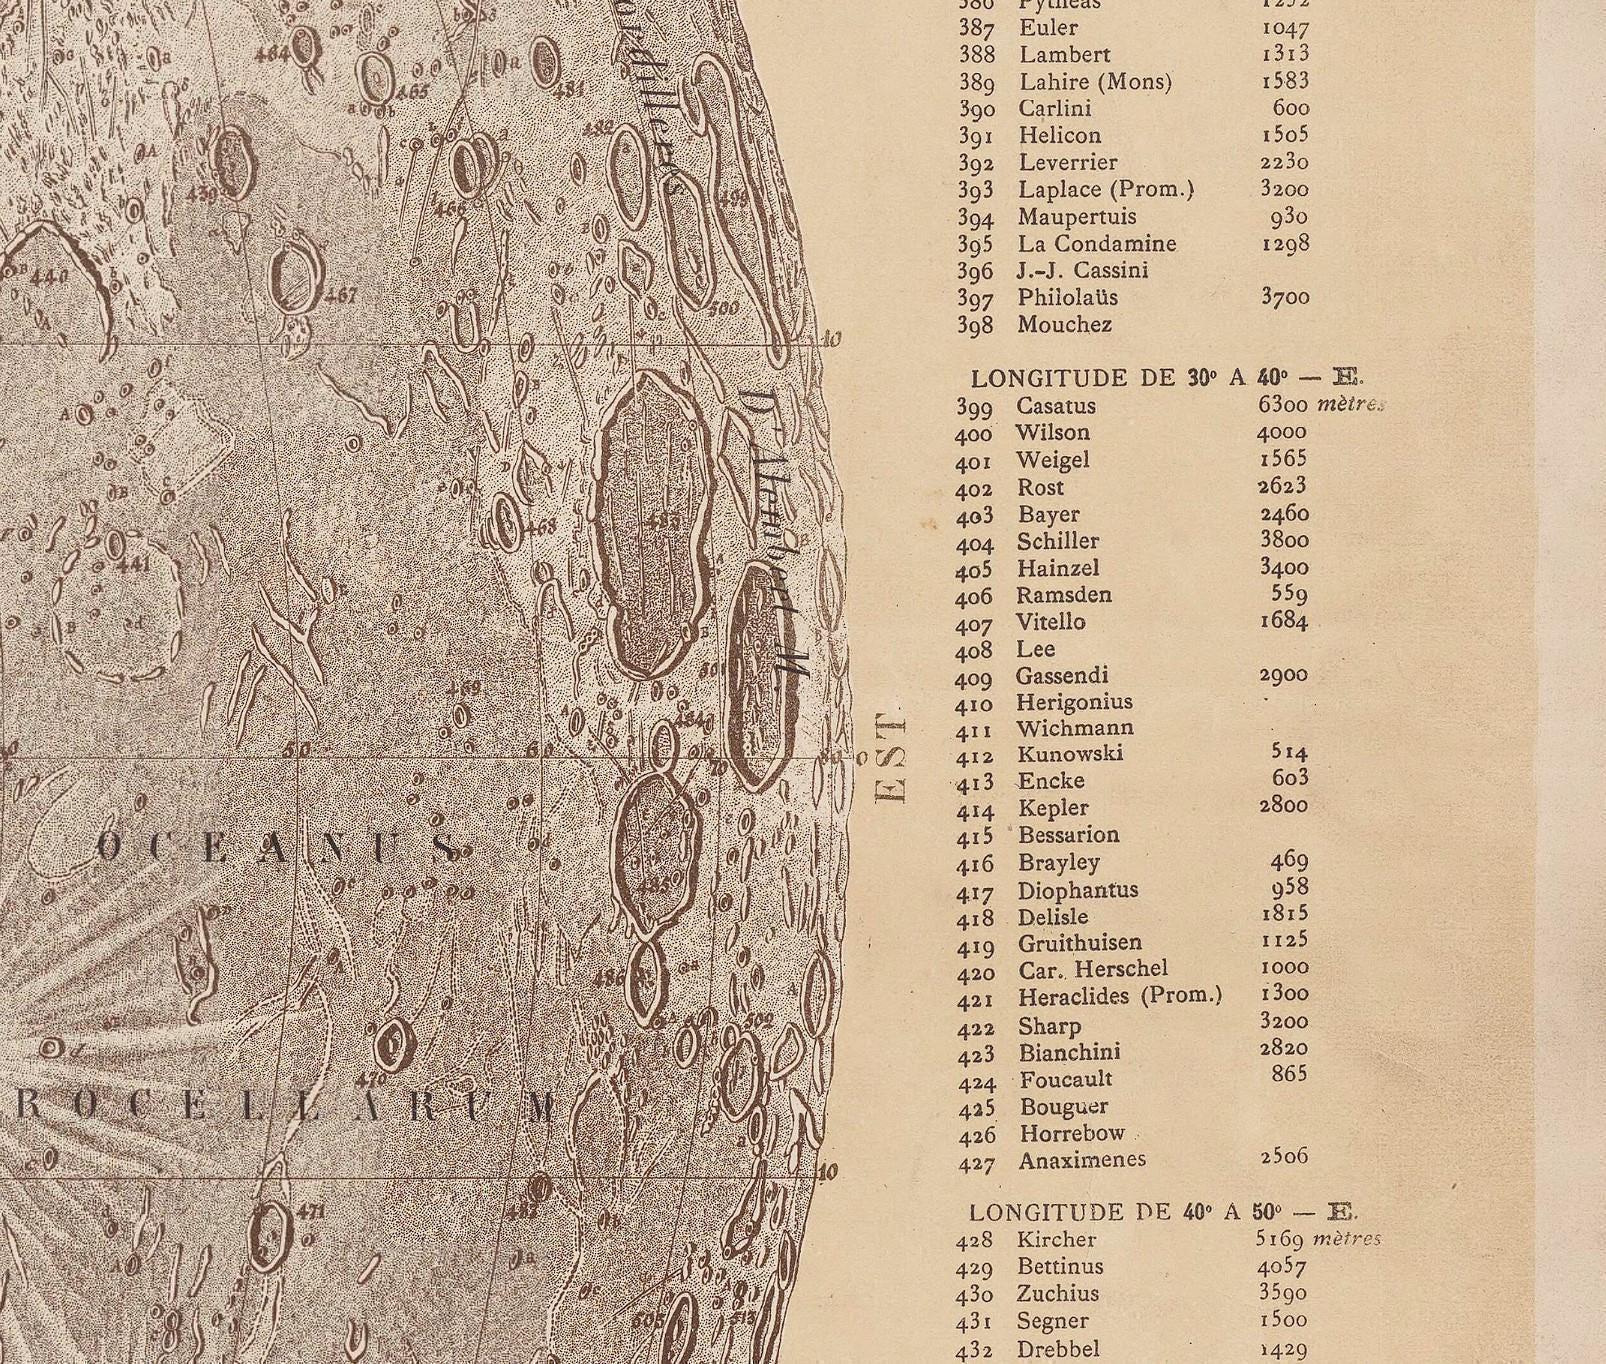 386 Pythéas 1252
387 Euler 1047
388 Lambert 1313
389 Lahire (Mons) 1583
390 Carlini 600
391 Helicon 1505
392 Leverrier 2230
393 Laplace (Prom.) 3200
394 Maupertuis 930
395 La Condamine 1298
396 J.-J. Cassini
397 Philolaüs 3700
398 Mouchez
LONGITUDE DE 30° A 40° — E.
399 Casatus 6300 mètres
400 Wilson 4000
401 Weigel 1565
402 Rost 2623
403 Bayer 2460
404 Schiller 3800
405 Hainzel 3400
406 Ramsden 559
407 Vitello 1684
408 Lee
409 Gassendi 2900
410 Herigonius
411 Wichmann
412 Kunowski 514
413 Encke 603
414 Kepler 2800
415 Bessarion
416 Brayley 469
417 Diophantus 958
418 Delisle 1815
419 Gruithuisen 1125
420 Car. Herschel 1000
421 Heraclides (Prom.) 1300
422 Sharp 3200
423 Bianchini 2820
424 Foucault 865
425 Bouguer
426 Horrebow
427 Anaximenes 2506
LONGITUDE DE 40° A 50° — E.
428 Kircher 5169 mètres
429 Bettinus 4057
430 Zuchius 3590
431 Segner 1500
432 Drebbel 1429
EST
D'Alembert M.
OCEANUS
ROCELLARUM
464
465
481
482
439
466
499
440
467
500
10
468
483
441
469
484
50
60
70
80
0
485
486
502
470
10
471
487
503
513